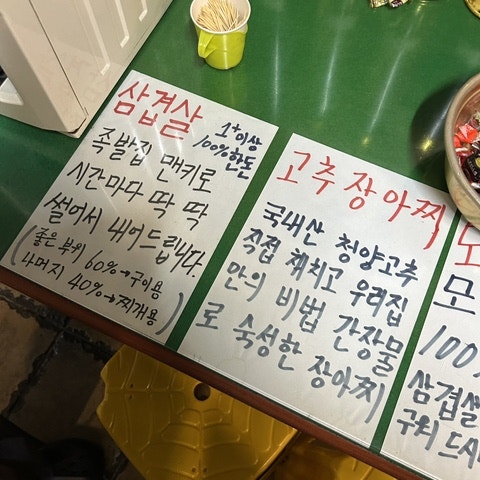 삼겹살 1+이상
100%한돈
족발집 맨키로
시간마다 딱 딱
썰어서 내어드립니다
(좋은 부위 60%→구이용
나머지 40%→찌개용)
고추장아찌
국내산 청양고추
직접 채치고 우리집
만의 비법 간장물
로 숙성한 장아찌
모
100%
삼겹살
구워 드시